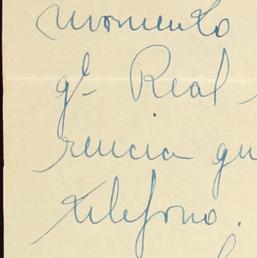 momento
qe Real
rencia qu
telefono.